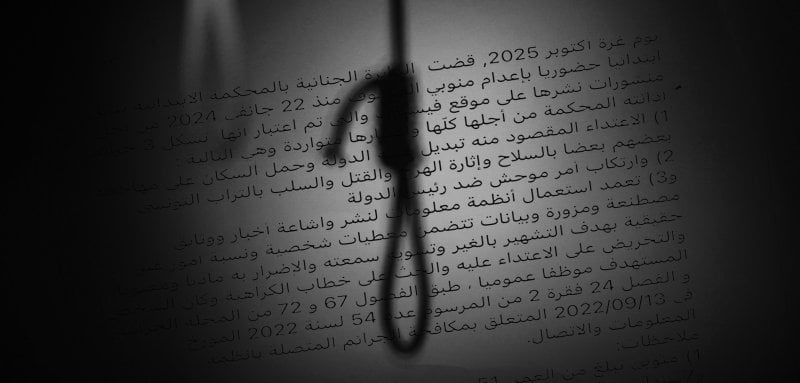 يوم غرة اكتوبر 2025, قضت الجنائية بالمحكمة الابتدائية
ابتدائيا حضوريا بإعدام منوبي منذ 22 جانفي 2024 من
منشورات نشرها على موقع والتي تم اعتبار انها تشكل 3
ادانته المحكمة من أجلها كلّها متواردة وهي التالية :
1) الاعتداء المقصود منه تبديل الدولة وحمل السكان على
بعضهم بعضا بالسلاح وإثارة الهرج والقتل والسلب بالتراب التونسي
2) وارتكاب أمر موحش ضد رئيس الدولة
و3) تعمد استعمال أنظمة معلومات لنشر واشاعة اخبار ووثائق
مصطنعة ومزورة وبيانات تتضمن معطيات شخصية ونسبة امور غير
حقيقية بهدف التشهير بالغير وتشويه سمعته والاضرار به ماديا ومعنويا
والتحريض على الاعتداء عليه والحث على خطاب الكراهية وكان
المستهدف موظفا عموميا ، طبق الفصول 67 و 72 من المجلة الجزائية
و الفصل 24 فقرة 2 من المرسوم عدد 54 لسنة 2022 المؤرخ
في 2022/09/13 المتعلق بمكافحة الجرائم المتصلة بأنظمة
المعلومات والاتصال.
ملاحظات:
1) منوبي يبلغ من العمر 51